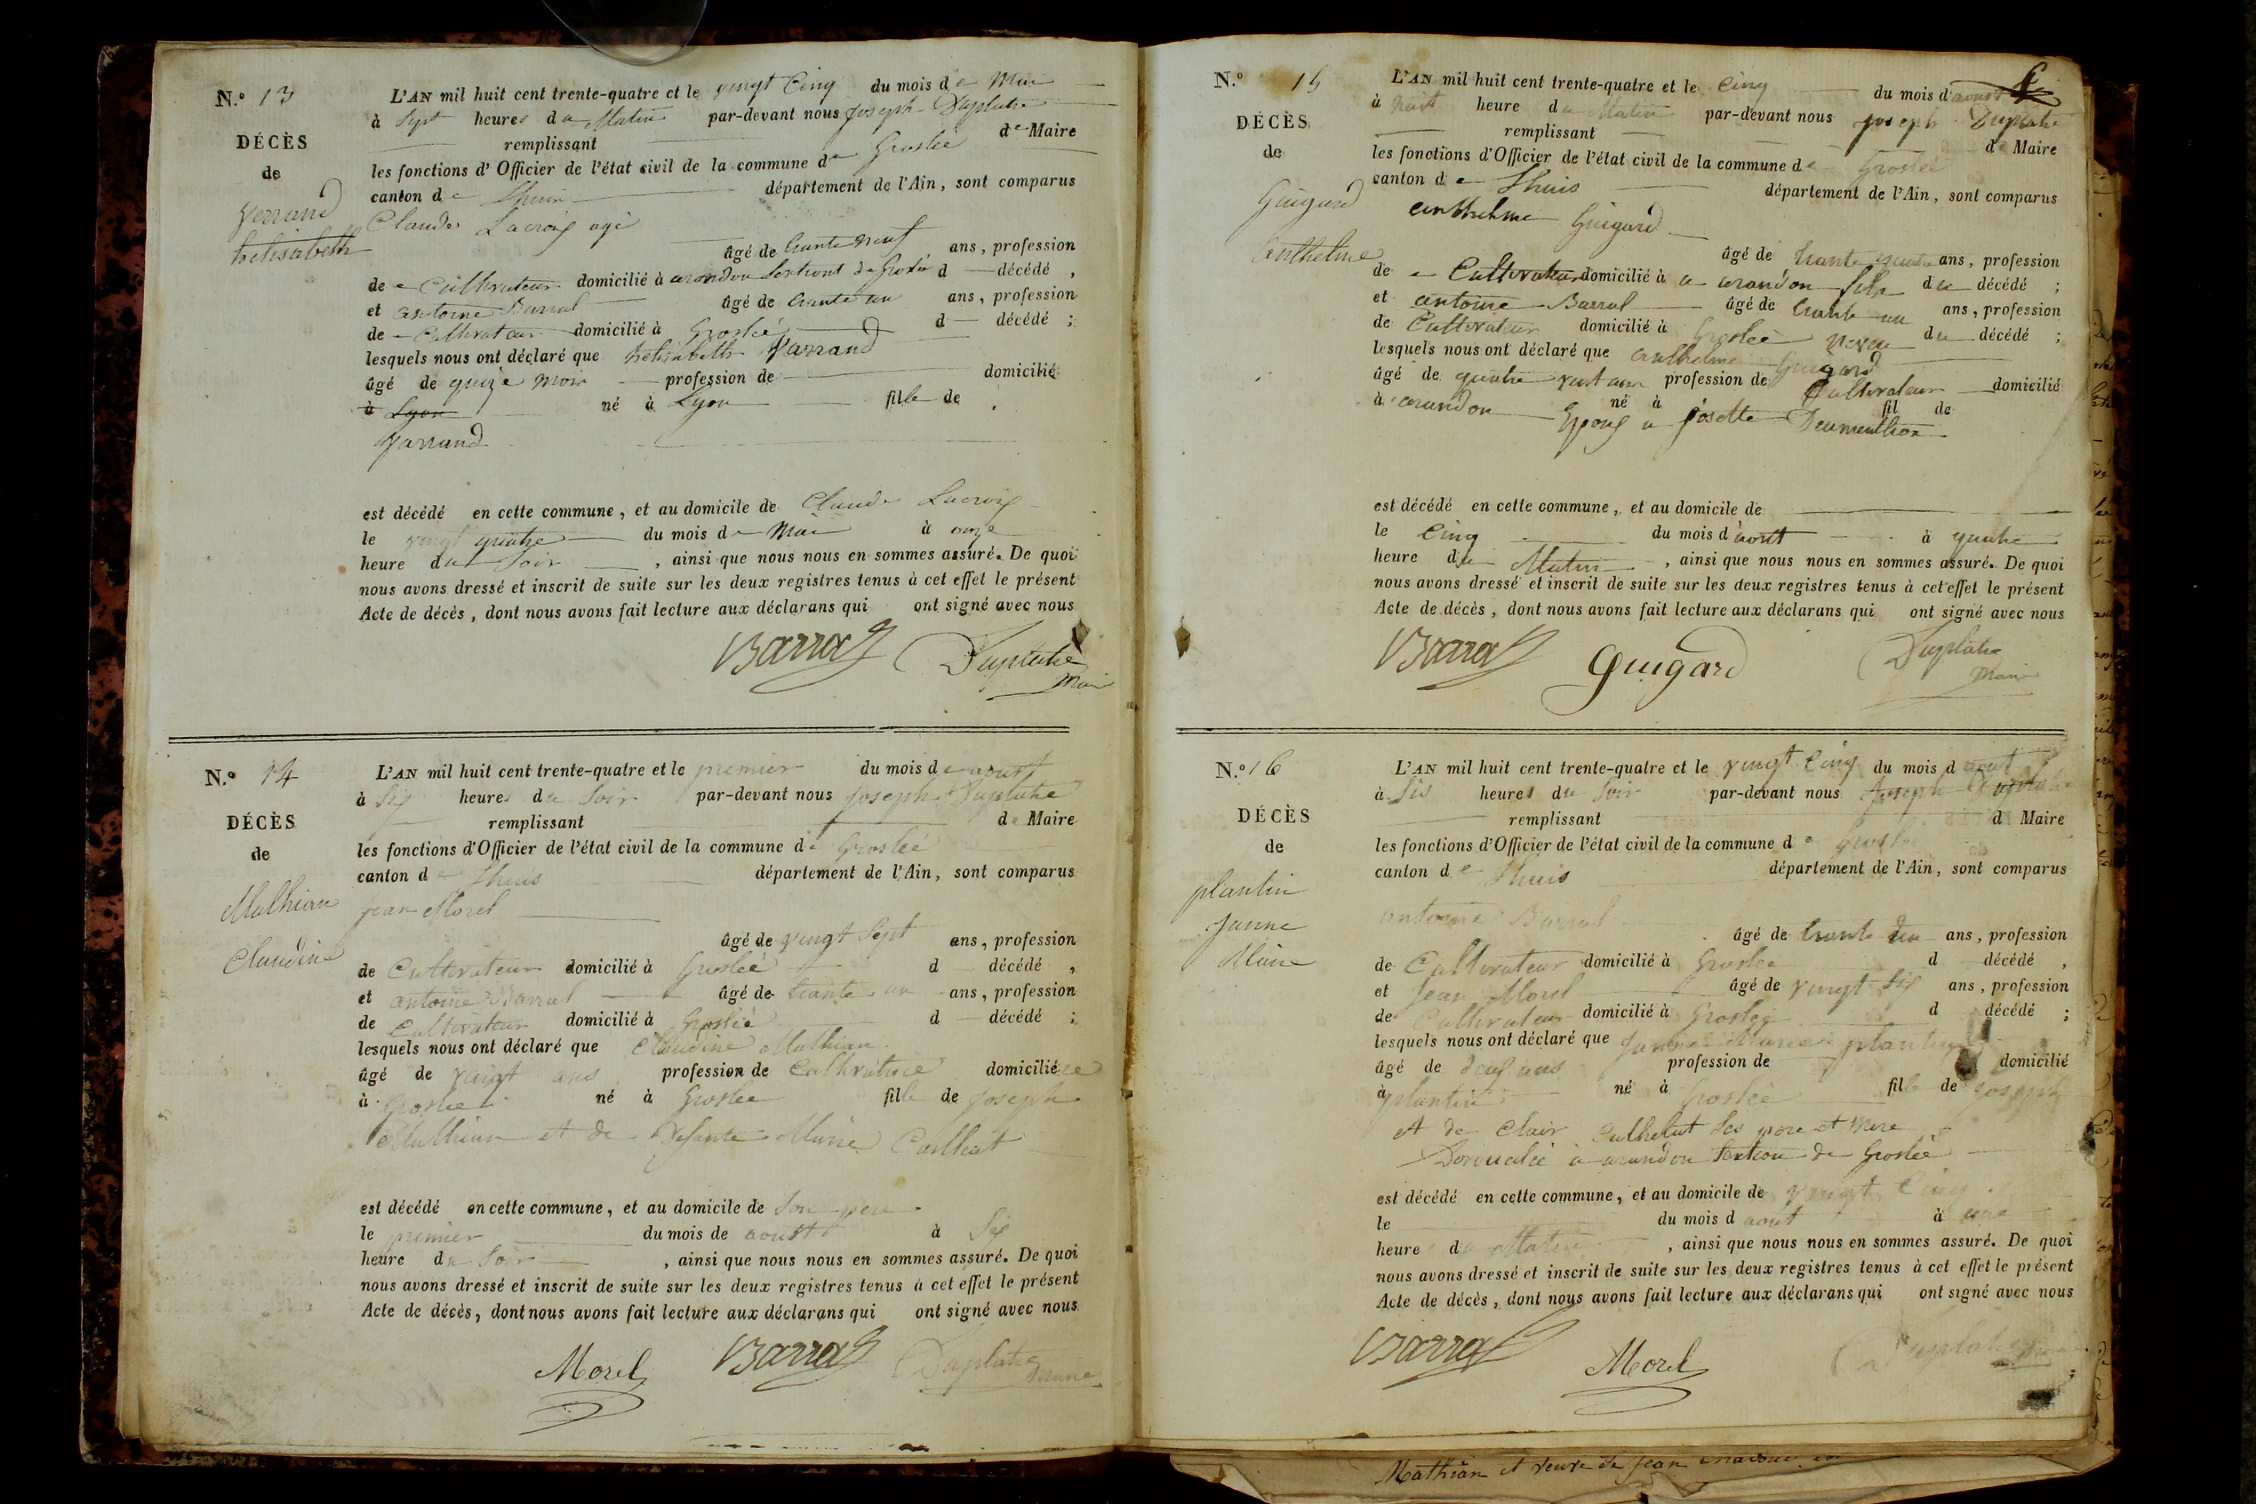 N.° 13
DÉCÈS
de
Verrand
helisabeth
L'AN mil huit cent trente-quatre et le vingt Cinq du mois de Mai
à Sept heures du Matin par-devant nous joseph Duplatre
remplissant de Maire
les fonctions d'Officier de l'état civil de la commune de Groslée
canton de Lhuis département de l'Ain, sont comparus
Claude Lacroix agé
âgé de trante neuf ans, profession
de Cultivateur domicilié à arandon Sextiont de Groslée d décédé,
et antoine Barral âgé de trante un ans, profession
de Cultivateur domicilié à Groslée d décédé;
lesquels nous ont déclaré que helisabeth Varrand
âgé de quize mois profession de domicilié
à Lyon né à Lyon fille de
Varrand
est décédé en cette commune, et au domicile de Claude Lacroix
le vingt quatre du mois de Mai à onze
heure du Soir, ainsi que nous nous en sommes assuré. De quoi
nous avons dressé et inscrit de suite sur les deux registres tenus à cet effet le présent
Acte de décès, dont nous avons fait lecture aux déclarans qui ont signé avec nous
Barral Duplatre
Maire
N.° 14
DÉCÈS
de
Mathian
Claudine
L'AN mil huit cent trente-quatre et le premier du mois de aoust
à Six heures du Soir par-devant nous joseph Duplatre
remplissant de Maire
les fonctions d'Officier de l'état civil de la commune de Groslée
canton de Lhuis département de l'Ain, sont comparus
jean Morel
âgé de vingt Sept ans, profession
de Cultivateur domicilié à Groslée d décédé,
et antoine Barral âgé de trante un ans, profession
de Cultivateur domicilié à Groslée d décédé;
lesquels nous ont déclaré que Claudine Mathian
âgé de vaint ans profession de Cultivatrice domiciliée
à Groslee né à Groslee fille de joseph
Mathian et de defante Marie Caillat
est décédé en cette commune, et au domicile de Son pere
le premier du mois de aoust à Six
heure du Soir, ainsi que nous nous en sommes assuré. De quoi
nous avons dressé et inscrit de suite sur les deux registres tenus à cet effet le présent
Acte de décès, dont nous avons fait lecture aux déclarans qui ont signé avec nous
Morel Barral Duplatre
Maire
N.° 15
DÉCÈS
de
Guigard
anthelme
L'AN mil huit cent trente-quatre et le Cinq du mois d'aoust
à huit heure du Matin par-devant nous joseph Duplatre
remplissant de Maire
les fonctions d'Officier de l'état civil de la commune de Groslée
canton de Lhuis département de l'Ain, sont comparus
anthelme Guigard
âgé de trante quatre ans, profession
de Cultivateur domicilié à a arandon fils du décédé;
et antoine Barral âgé de trante un ans, profession
de Cultivateur domicilié à Groslée neveu du décédé;
lesquels nous ont déclaré que anthelme Guigard
âgé de quatre vint ans profession de Cultivateur domicilié
à arandon né à fil de
Epoux a josette Deumenthon
est décédé en cette commune, et au domicile de
le Cinq du mois d'aout à quatre
heure du Matin, ainsi que nous nous en sommes assuré. De quoi
nous avons dressé et inscrit de suite sur les deux registres tenus à cet effet le présent
Acte de décès, dont nous avons fait lecture aux déclarans qui ont signé avec nous
Barral Guigard Duplatre
Maire
N.° 16
DÉCÈS
de
plantin
janne
Marie
L'AN mil huit cent trente-quatre et le vingt Cinq du mois d aout
à Sis heures du Soir par-devant nous Joseph Duplatre
remplissant d Maire
les fonctions d'Officier de l'état civil de la commune de Groslée
canton de Lhuis département de l'Ain, sont comparus
antoine Barral
âgé de trante un ans, profession
de Cultivateur domicilié à Groslee d décédé,
et Jean Morel âgé de vingt Six ans, profession
de Cultivateur domicilié à Groslee d décédé;
lesquels nous ont déclaré que janne Marie plantin
âgé de deux ans profession de domicilié
à plantin né à Groslée fille de joseph
et de Clair Ses pere et mere
a arandon Sextion de Groslée
est décédé en cette commune, et au domicile de vingt Cinq
le du mois d aout à une
heure du Matin, ainsi que nous nous en sommes assuré. De quoi
nous avons dressé et inscrit de suite sur les deux registres tenus à cet effet le présent
Acte de décès, dont nous avons fait lecture aux déclarans qui ont signé avec nous
Barral Morel Duplatre
Mathian et veuve de jean